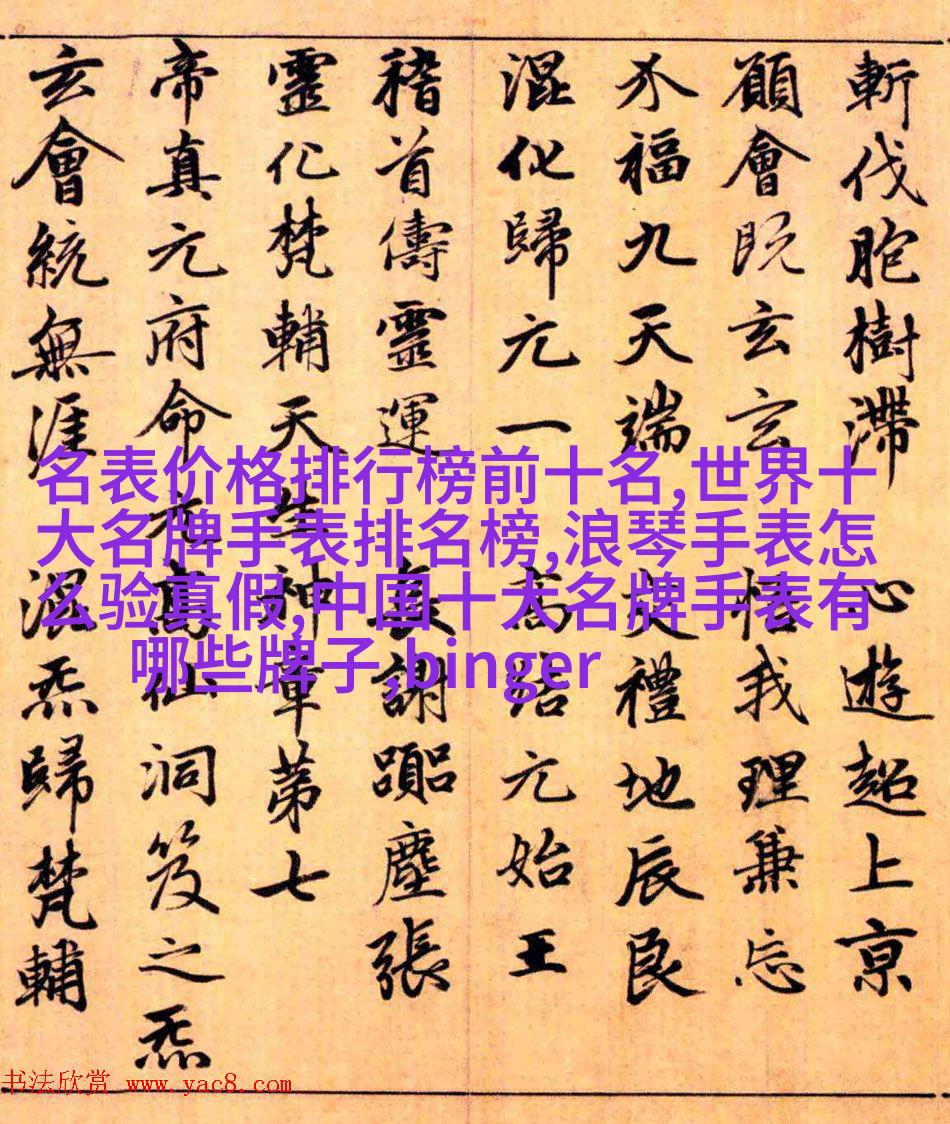 斬伐胞樹滯 心遊超上亰
願會既玄玄 悟我理兼忘
介福九天端 交禮地辰良
混化歸元一 高結元始王
稽首儔靈運 長謝塵張
靈化梵輔天生神章第七
帝真元府命元高仙洞笈之炁
玄會統無涯 混炁歸梵輔
名表价格排行榜前十名,世界十
大名牌手表排名榜,浪琴手表怎
么验真假,中国十大名牌手表有
哪些牌子,binger
书法欣赏 www.yac8.com